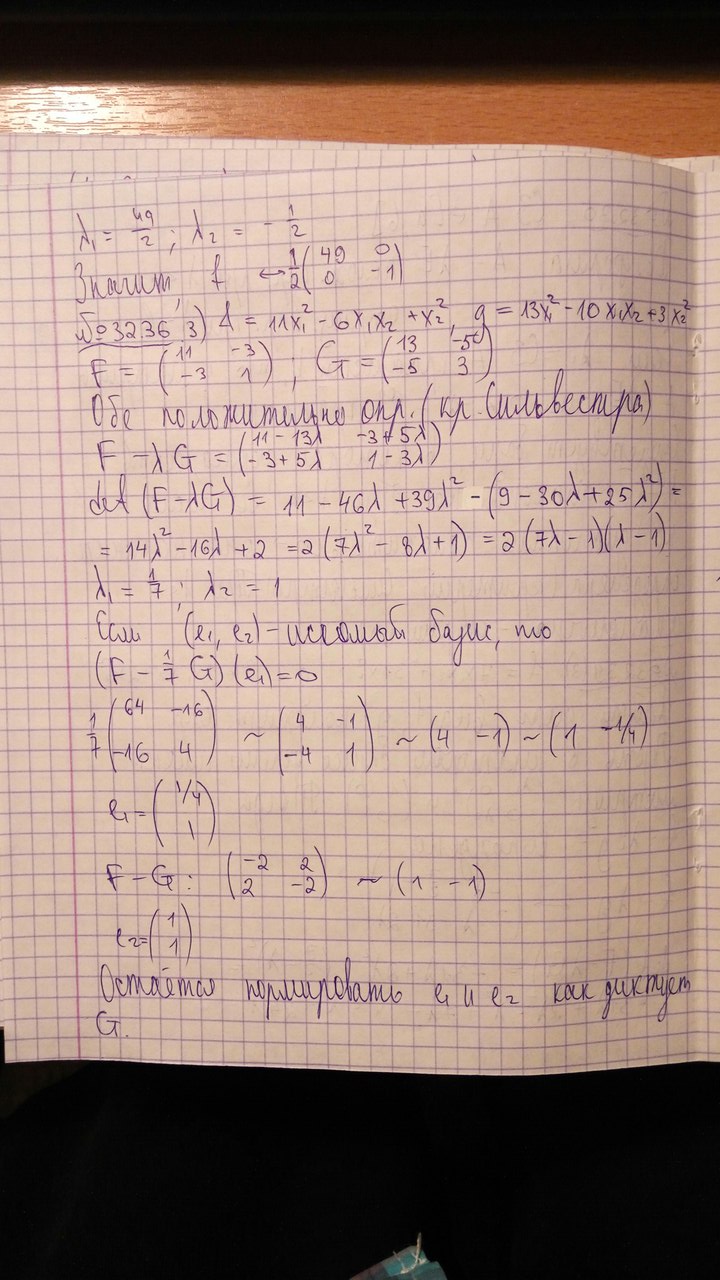 λ₁ = 49/2 ; λ₂ = - 1/2
Значит, f ↔ 1/2 (49 0; 0 -1)
№32.36 3) f = 11x₁² - 6x₁x₂ + x₂², g = 13x₁² - 10x₁x₂ + 3x₂²
F = (11 -3; -3 1) ; G = (13 -5; -5 3)
Обе положительно опр. (кр. Сильвестра)
F - λG = (11 - 13λ -3 + 5λ; -3 + 5λ 1 - 3λ)
det (F - λG) = 11 - 46λ + 39λ² - (9 - 30λ + 25λ²) =
= 14λ² - 16λ + 2 = 2(7λ² - 8λ + 1) = 2(7λ - 1)(λ - 1)
λ₁ = 1/7 ; λ₂ = 1
Если (e₁, e₂) - искомый базис, то
(F - 1/7 G)(e₁) = 0
1/7 (64 -16; -16 4) ~ (4 -1; -4 1) ~ (4 -1) ~ (1 -1/4)
e₁ = (1/4; 1)
F - G : (-2 2; 2 -2) ~ (1 -1)
e₂ = (1; 1)
Остаётся нормировать e₁ и e₂ как диктует
G.